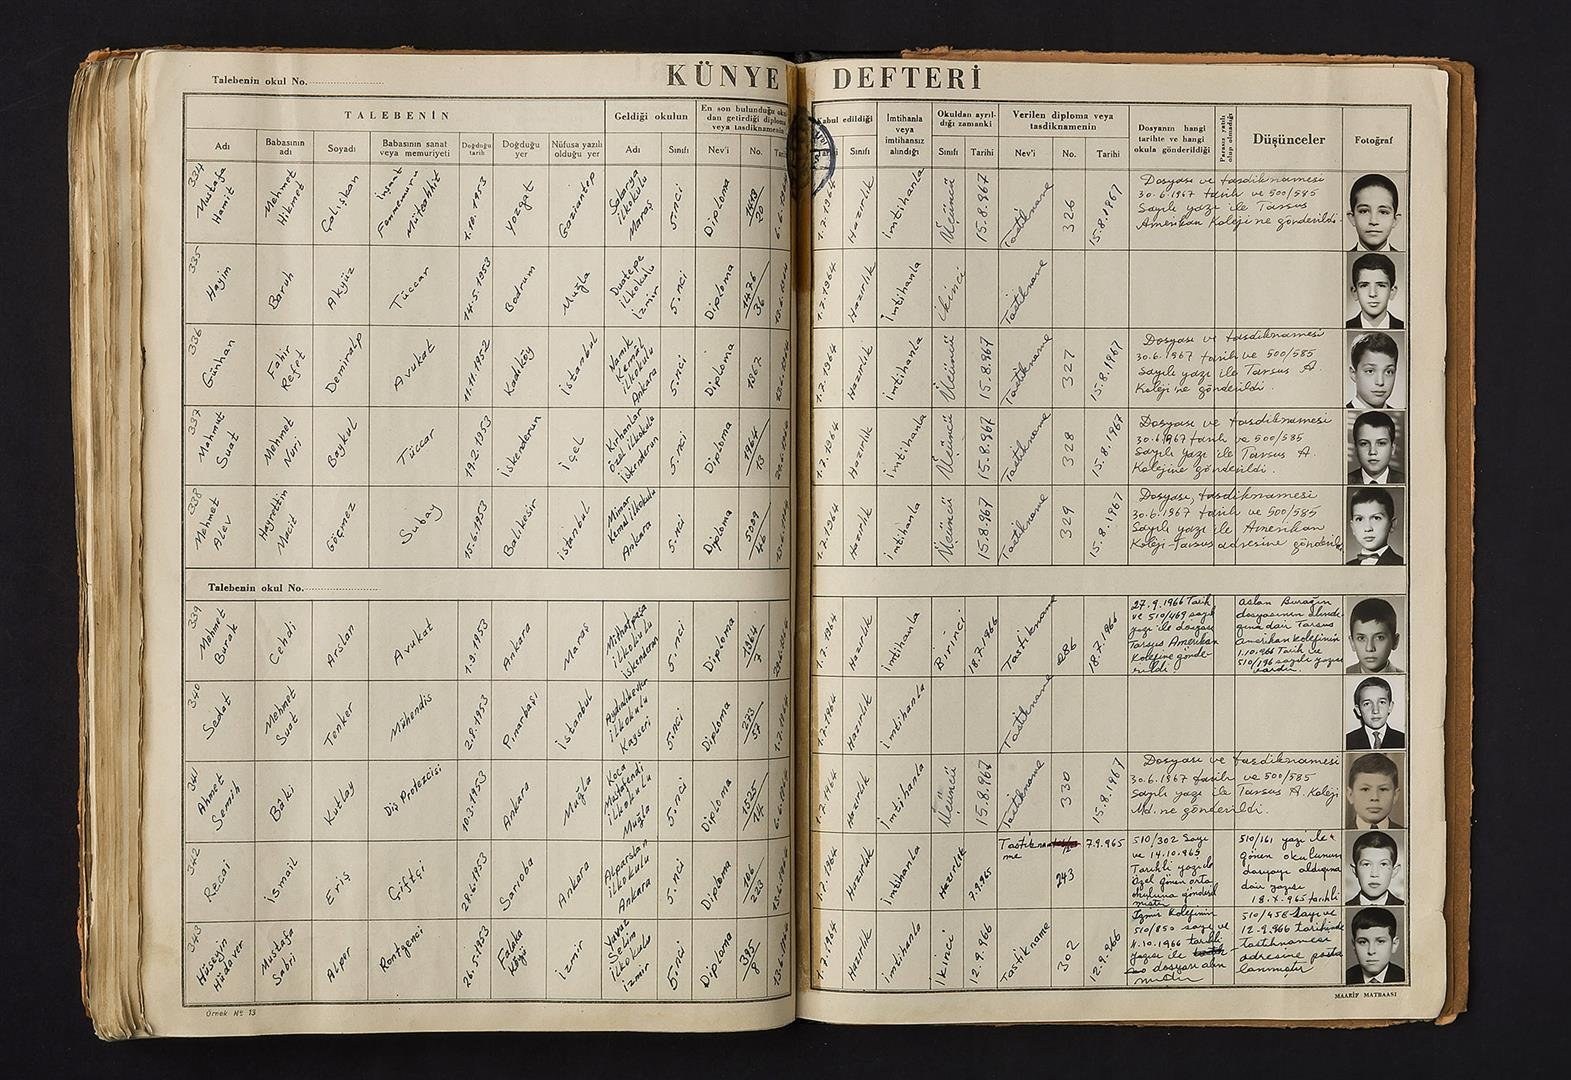 KÜNYE DEFTERİ
Talebenin okul No.
TALEBENİN
Geldiği okulun
En son bulunduğu okul-
dan getirdiği diploma
veya tasdiknamenin
Kabul edildiği
İmtihanla
veya
imtihansız
alındığı
Okuldan ayrıl-
dığı zamanki
Verilen diploma veya
tasdiknamenin
Dosyanın hangi
tarihte ve hangi
okula gönderildiği
Parasız yatılı
olup olmadığı
Düşünceler
Fotoğraf
Adı
Babasının
adı
Soyadı
Babasının sanat
veya memuriyeti
Doğduğu
tarih
Doğduğu
yer
Nüfusa yazılı
olduğu yer
Adı
Sınıfı
Nev'i
No.
Sınıfı
Sınıfı
Tarihi
Nev'i
No.
Tarihi
334
Mustafa
Hamit
Mehmet
Hikmet
Çalışkan
İnşaat
Müteahhit
1.10.1953
Yozgat
Gaziantep
Sakarya
İlkokulu
Maraş
5.nci
Diploma
1.7.1964
Hazırlık
İmtihanla
Üçüncü
15.8.967
Tastikname
326
15.8.1967
Dosyası ve tasdiknamesi
30.6.1967 tarih ve 500/585
Sayılı yazı ile Tarsus
Amerikan Koleji'ne gönderildi.
335
Hayim
Baruh
Akyüz
Tüccar
14.5.1953
Bodrum
Muğla
Duatepe
İlkokulu
İzmir
5.nci
Diploma
1476
36
1.7.1964
Hazırlık
İmtihanla
İkinci
Tastikname
336
Günhan
Fahir
Refet
Demiralp
Avukat
11.11.1952
Kadıköy
İstanbul
Namık
Kemal
İlkokulu
Ankara
5.nci
Diploma
1367
1.7.1964
Hazırlık
İmtihanla
Üçüncü
15.8.967
Tastikname
327
15.8.1967
Dosyası ve tasdiknamesi
30.6.1967 tarih ve 500/585
Sayılı yazı ile Tarsus A.
Koleji'ne gönderildi.
337
Mahmut
Suat
Mehmet
Nuri
Baykul
Tüccar
19.2.1953
İskenderun
İçel
Kırhanlar
özel ilkokulu
İskenderun
5.nci
Diploma
1964
13
1.7.1964
Hazırlık
İmtihanla
Üçüncü
15.8.967
Tastikname
328
15.8.1967
Dosyası ve tasdiknamesi
30.6.1967 tarih ve 500/585
Sayılı yazı ile Tarsus A.
Kolejine gönderildi.
338
Mehmet
Alev
Hayrettin
Macit
Göçmez
Subay
15.6.1953
Balıkesir
İstanbul
Mimar
Kemal ilkokulu
Ankara
5.nci
Diploma
5009
46
1.7.1964
Hazırlık
İmtihanla
Üçüncü
15.8.967
Tastikname
329
15.8.1967
Dosyası, tasdiknamesi
30.6.1967 tarih ve 500/585
Sayılı yazı ile Amerikan
Koleji-Tarsus adresine gönderildi
Talebenin okul No.
339
Mehmet
Burak
Cehdi
Arslan
Avukat
1.9.1953
Ankara
Maraş
Mithatpaşa
ilkokulu
İskenderun
5.nci
Diploma
1964
7
1.7.1964
Hazırlık
İmtihanla
Birinci
18.7.1966
Tastikname
286
18.7.1966
27.9.1966 Tarih
ve 510/469 sayılı
yazı ile dosyası
Tarsus Amerikan
Kolejine gönde-
rildi.
Aslan Burağın
dosyasının alındı-
ğına dair Tarsus
Amerikan Kolejinin
1.10.966 Tarih ve
510/196 sayılı yazısı
vardır.
340
Sedat
Mehmet
Suat
Tenker
Mühendis
2.8.1953
Pınarbaşı
İstanbul
Aydınlıkevler
İlkokulu
Kayseri
5.nci
Diploma
273
57
1.7.1964
Hazırlık
İmtihanla
Tastikname
341
Ahmet
Semih
Bâki
Kutlay
Diş Protezcisi
10.3.1953
Ankara
Muğla
Koca
Mustafendi
İlkokulu
Muğla
5.nci
Diploma
1525
14
1.7.1964
Hazırlık
İmtihanla
Üçüncü
15.8.967
Tastikname
330
15.8.1967
Dosyası ve tasdiknamesi
30.6.1967 tarih ve 500/585
Sayılı yazı ile Tarsus A. Koleji
Md.ne gönderildi.
342
Recai
İsmail
Eriş
Çiftçi
28.6.1953
Sarıoba
Ankara
Alparslan
İlkokulu
Ankara
5.nci
Diploma
186
223
1.7.1964
Hazırlık
İmtihanla
Hazırlık
7.9.965
Tastikna
me
243
7.9.965
510/302 Sayı
ve 14.10.965
Tarihli yazı ile
Özel gönen orta
okuluna gönderil
miştir
510/161 yazı ile
gönen okulunun
dosyayı aldığına
dair yazısı
18.X.965 tarihli
343
Hüseyin
Hüdaver
Mustafa
Sabri
Alper
Rontgenci
26.5.1953
Falaka
Köyü
İzmir
Yavuz
Selim
İlkokulu
İzmir
5.nci
Diploma
395
8
1.7.1964
Hazırlık
İmtihanla
İkinci
12.9.966
Tastikname
302
12.9.966
İzmir Kolejinin
510/850 sayı ve
11.10.1966 tarihli
yazısı ile
dosyası alın
mıştır
510/458 Sayı ve
12.9.966 tarihinde
tastiknamesi
adresine posta
lanmıştır
Örnek No 13
MAARİF MATBAASI